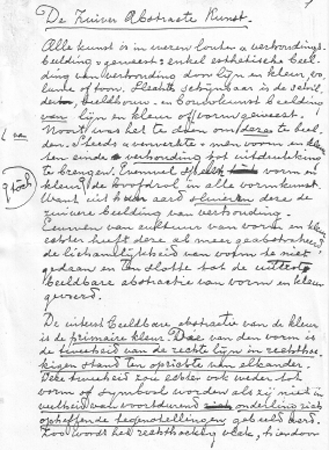 De Zuiver Abstracte Kunst.
Alle kunst is in wezen louter verhoudings-
beelding geweest: enkel esthetische beel-
ding van verhouding door lijn en kleur, vo-
lume of toon. Slechts schijnbaar is de schil-
der, beeldhouw- en bouwkunst beelding
van lijn en kleur of vorm geweest.
Nooit was het te doen om deze te beel-
den. Steeds verwerkte men vorm en kleur
ten einde verhouding tot uitdrukking
te brengen. Evenwel vorm en
kleur de hoofdrol in alle vormkunst.
Want uit haar aard sluieren deze de
zuivere beelding van verhouding.
Eeuwen van cultuur van vorm en kleur
echter heeft deze al meer geabstraheerd
de lichamelijkheid van vorm te niet
gedaan en ten slotte tot de uiterst
beeldbare abstractie van vorm en kleur
gevoerd.
De uiterst beeldbare abstractie van de kleur
is de primaire kleur. Die van den vorm is
de tweeheid van de rechte lijn in rechthoe-
kigen stand ten opzichte van elkander.
Deze tweeheid zou echter ook weder tot
vorm of symbool worden als zij niet in
veelheid van voortdurend onderling zich
opheffende tegenstellingen gebeeld werd.
Zoo wordt het rechthoekig vlak, hierdoor
van
toch